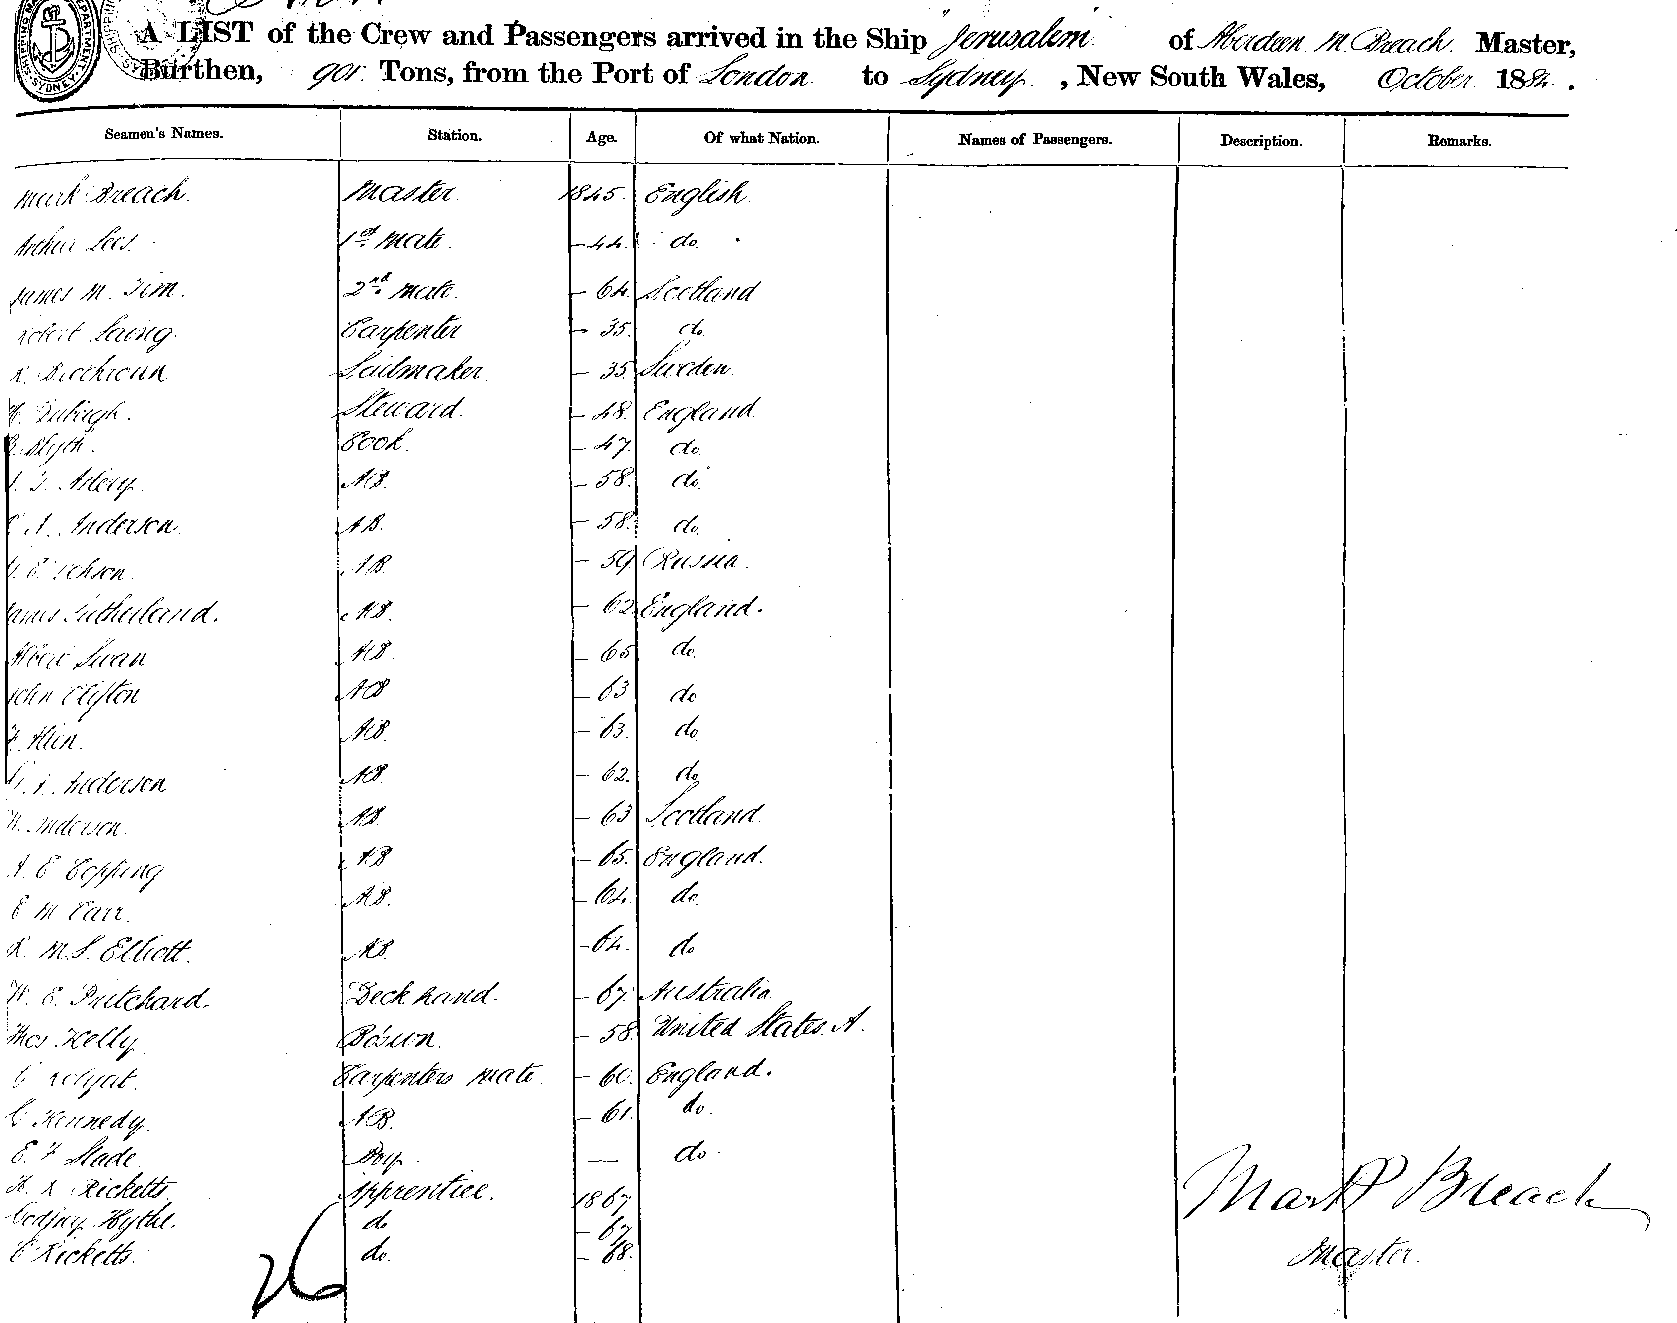 A LIST of the Crew and Passengers arrived in the Ship "Jerusalem" of Aberdeen M Breach Master,
Burthen, 901 Tons, from the Port of London to Sydney, New South Wales, October 1884.
Seamen's Names. Station. Age. Of what Nation. Names of Passengers. Description. Remarks.
Mark Breach. Master. 1845. English.
Arthur Lees. 1st Mate. - 44. do.
James M. Sim. 2nd Mate. - 64. Scotland
Robert Laing. Carpenter - 35. do.
Sailmaker. - 35. Sweden.
Steward. - 48. England.
Blyth. Cook. - 47. do.
AB. - 58. do.
A. Anderson. AB. - 58. do.
AB. - 59 Russia.
James Sutherland. AB. - 62. England.
Albert Swan AB. - 65 do.
John Clifton AB - 63 do
AB. - 63. do.
Anderson AB. - 62. do
Anderson. AB. - 63 Scotland.
A. E Topping AB - 65. England.
E M Carr. AB. - 64. do.
R. M. S. Elliott. AB. - 64. do
W. E. Pritchard. Deck hand. - 67. Australia.
Thos Kelly Bosun. - 58. United States. A.
Carpenters mate. - 60. England.
C Kennedy. AB. - 61. do.
E. F Slade. Boy. — do.
H. R Ricketts Apprentice. 1867
Hythe. do - 67
C Ricketts. do. - 68.
26
Mark Breach
Master.